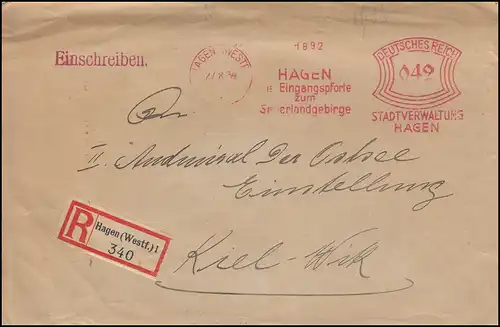 1892
Einschreiben.
HAGEN (WESTF)
DEUTSCHES REICH
042
HAGEN
Eingangspforte
zum
Sauerlandgebirge
STADTVERWALTUNG
HAGEN
An
II. Admiral Der Ostsee
Einstellung
R Hagen (Westf.) 1
340
Kiel-Wik